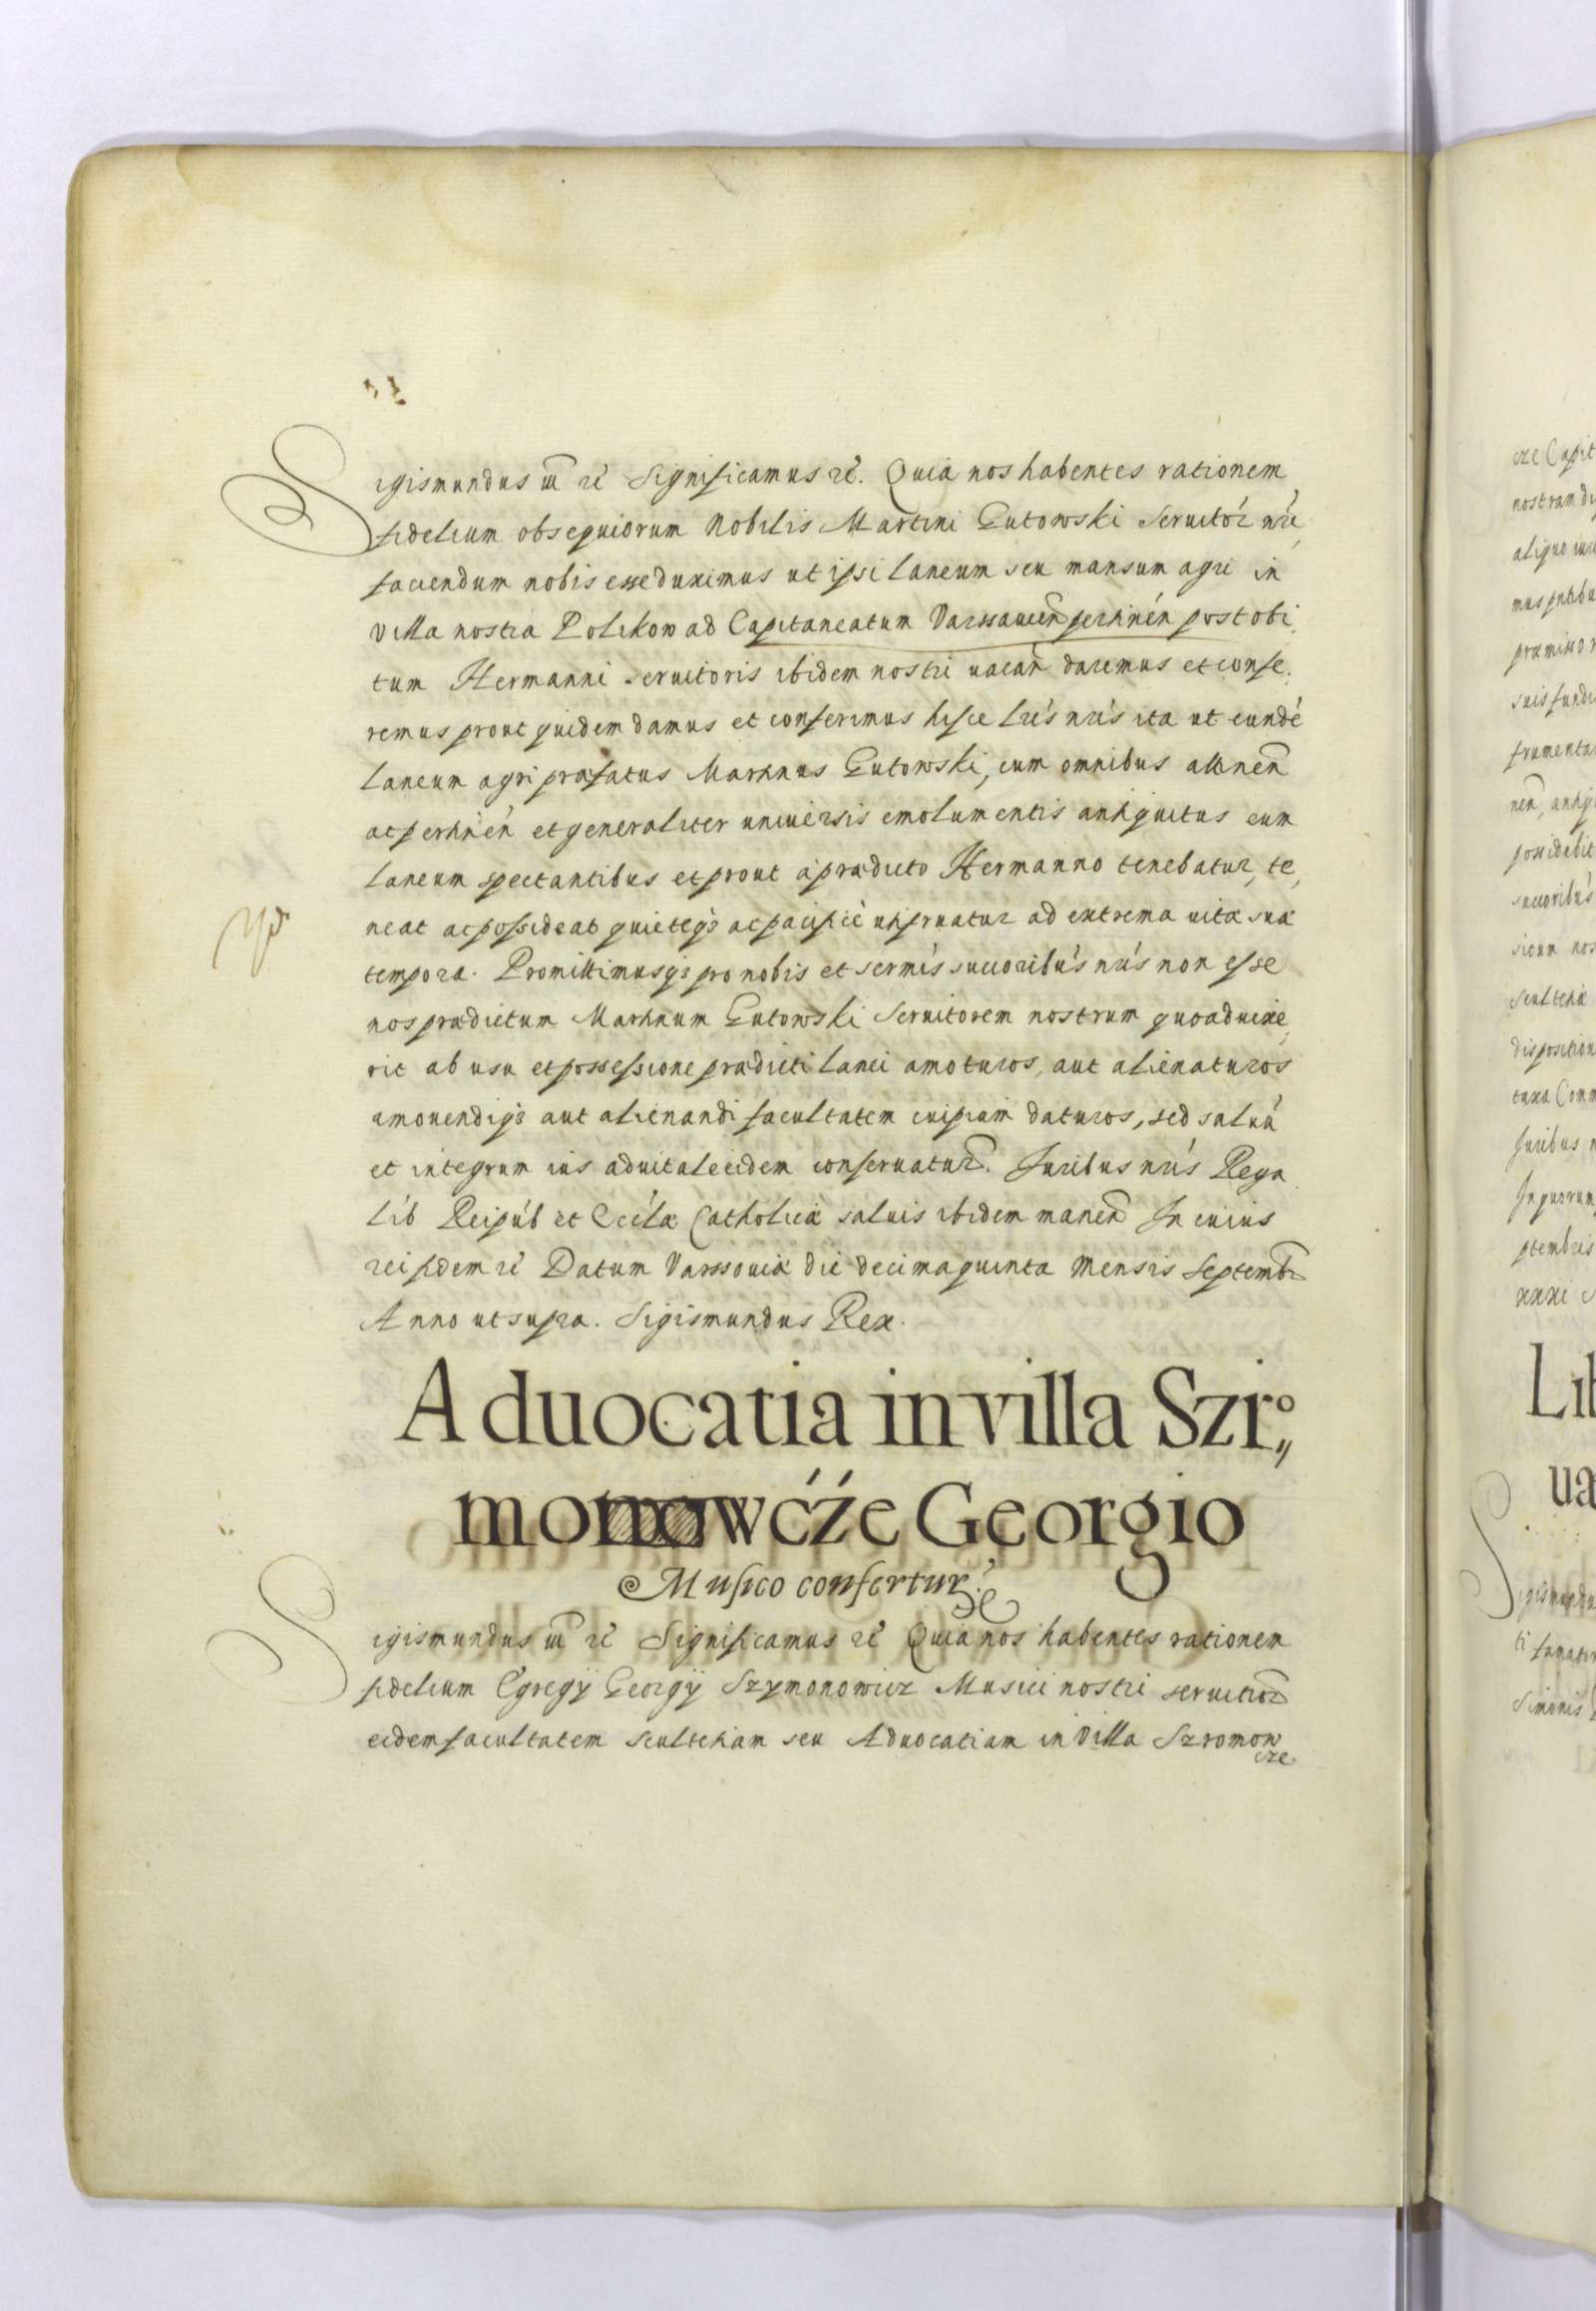 Sigismundus iii rc Significamus rc. Quia nos habentes rationem
fidelium obsequiorum Nobilis Martini Gutowski Seruitor nri
faciendum nobis esse duximus ut ipsi laneum seu mansum agri in
villa nostra Polikow ad Capitaneatum Varssauien pertinen post obi,
tum Hermanni seruitoris ibidem nostri uacan daremus et confe,
remus prout quidem damus et conferimus hisce lris nris ita ut eunde
laneum agri præfatus Martinus Gutowski, cum omnibus attinen
ac pertinen et generaliter uniuersis emolumentis antiquitus eum
laneum spectantibus et prout à prædicto Hermanno tenebatur, te,
neat ac possideat quieteq3 ac pacifice utifruatur ad extrema uitæ suæ
tempora. Promittimusq3 pro nobis et sermis succoribus nris non esse
nos prædictum Martinum Gutowski Seruitorem nostrum quoad uixe,
rit ab usu et possessione prædicti lanei amoturos, aut alienaturos
amouendiq3 aut alienandi facultatem cuipiam daturos, sed saluu
et integrum ius aduitale eidem conseruatur. Juribus nris Rega
lib Reipub et Eccla Catholicæ saluis ibidem manen In cuius
rei fidem rc Datum Varssouiæ die decima quinta Mensis Septemb
Anno ut supra. Sigismundus Rex.
Aduocatia in villa Szro,,
monowćźe Georgio
Musico confertur.
Sigismundus iii rc Significamus rc Quia nos habentes rationem
fidelium Egregij Georgij Szymonowicz Musici nostri seruitior
eidem facultatem scultetiam seu Aduocatiam in Villa Szromow
cze
cze Capit
nostram di
aliquo
mus
præmisso
suis fundi
frumenta
nen, antiq
possidebit
succoribus
sicum nos
Scultetiæ
disposition
taxa Comm
Juribus n
In quorum
ptembris
xxxi S
Lib
ua
Sigismundu
ti famati
Simonis